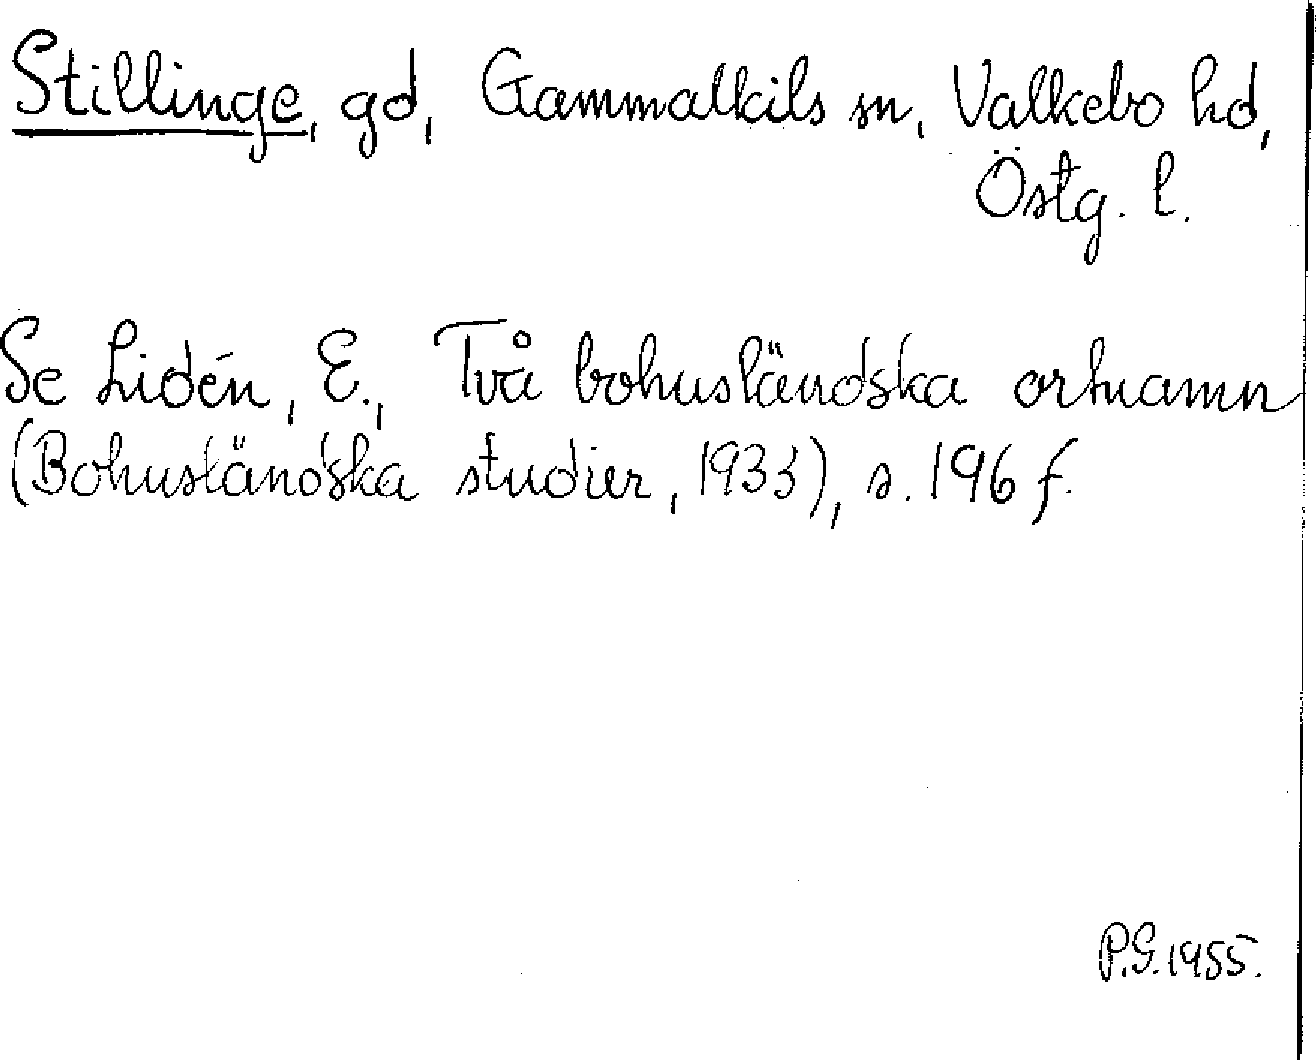 Stillinge, gd, Gammalkils sn, Valkebo hd,
Östg. l.
Se Lidén, E., Två bohusländska ortnamn
(Bohusländska studier, 1933), s. 196 f.
P.G. 1955.